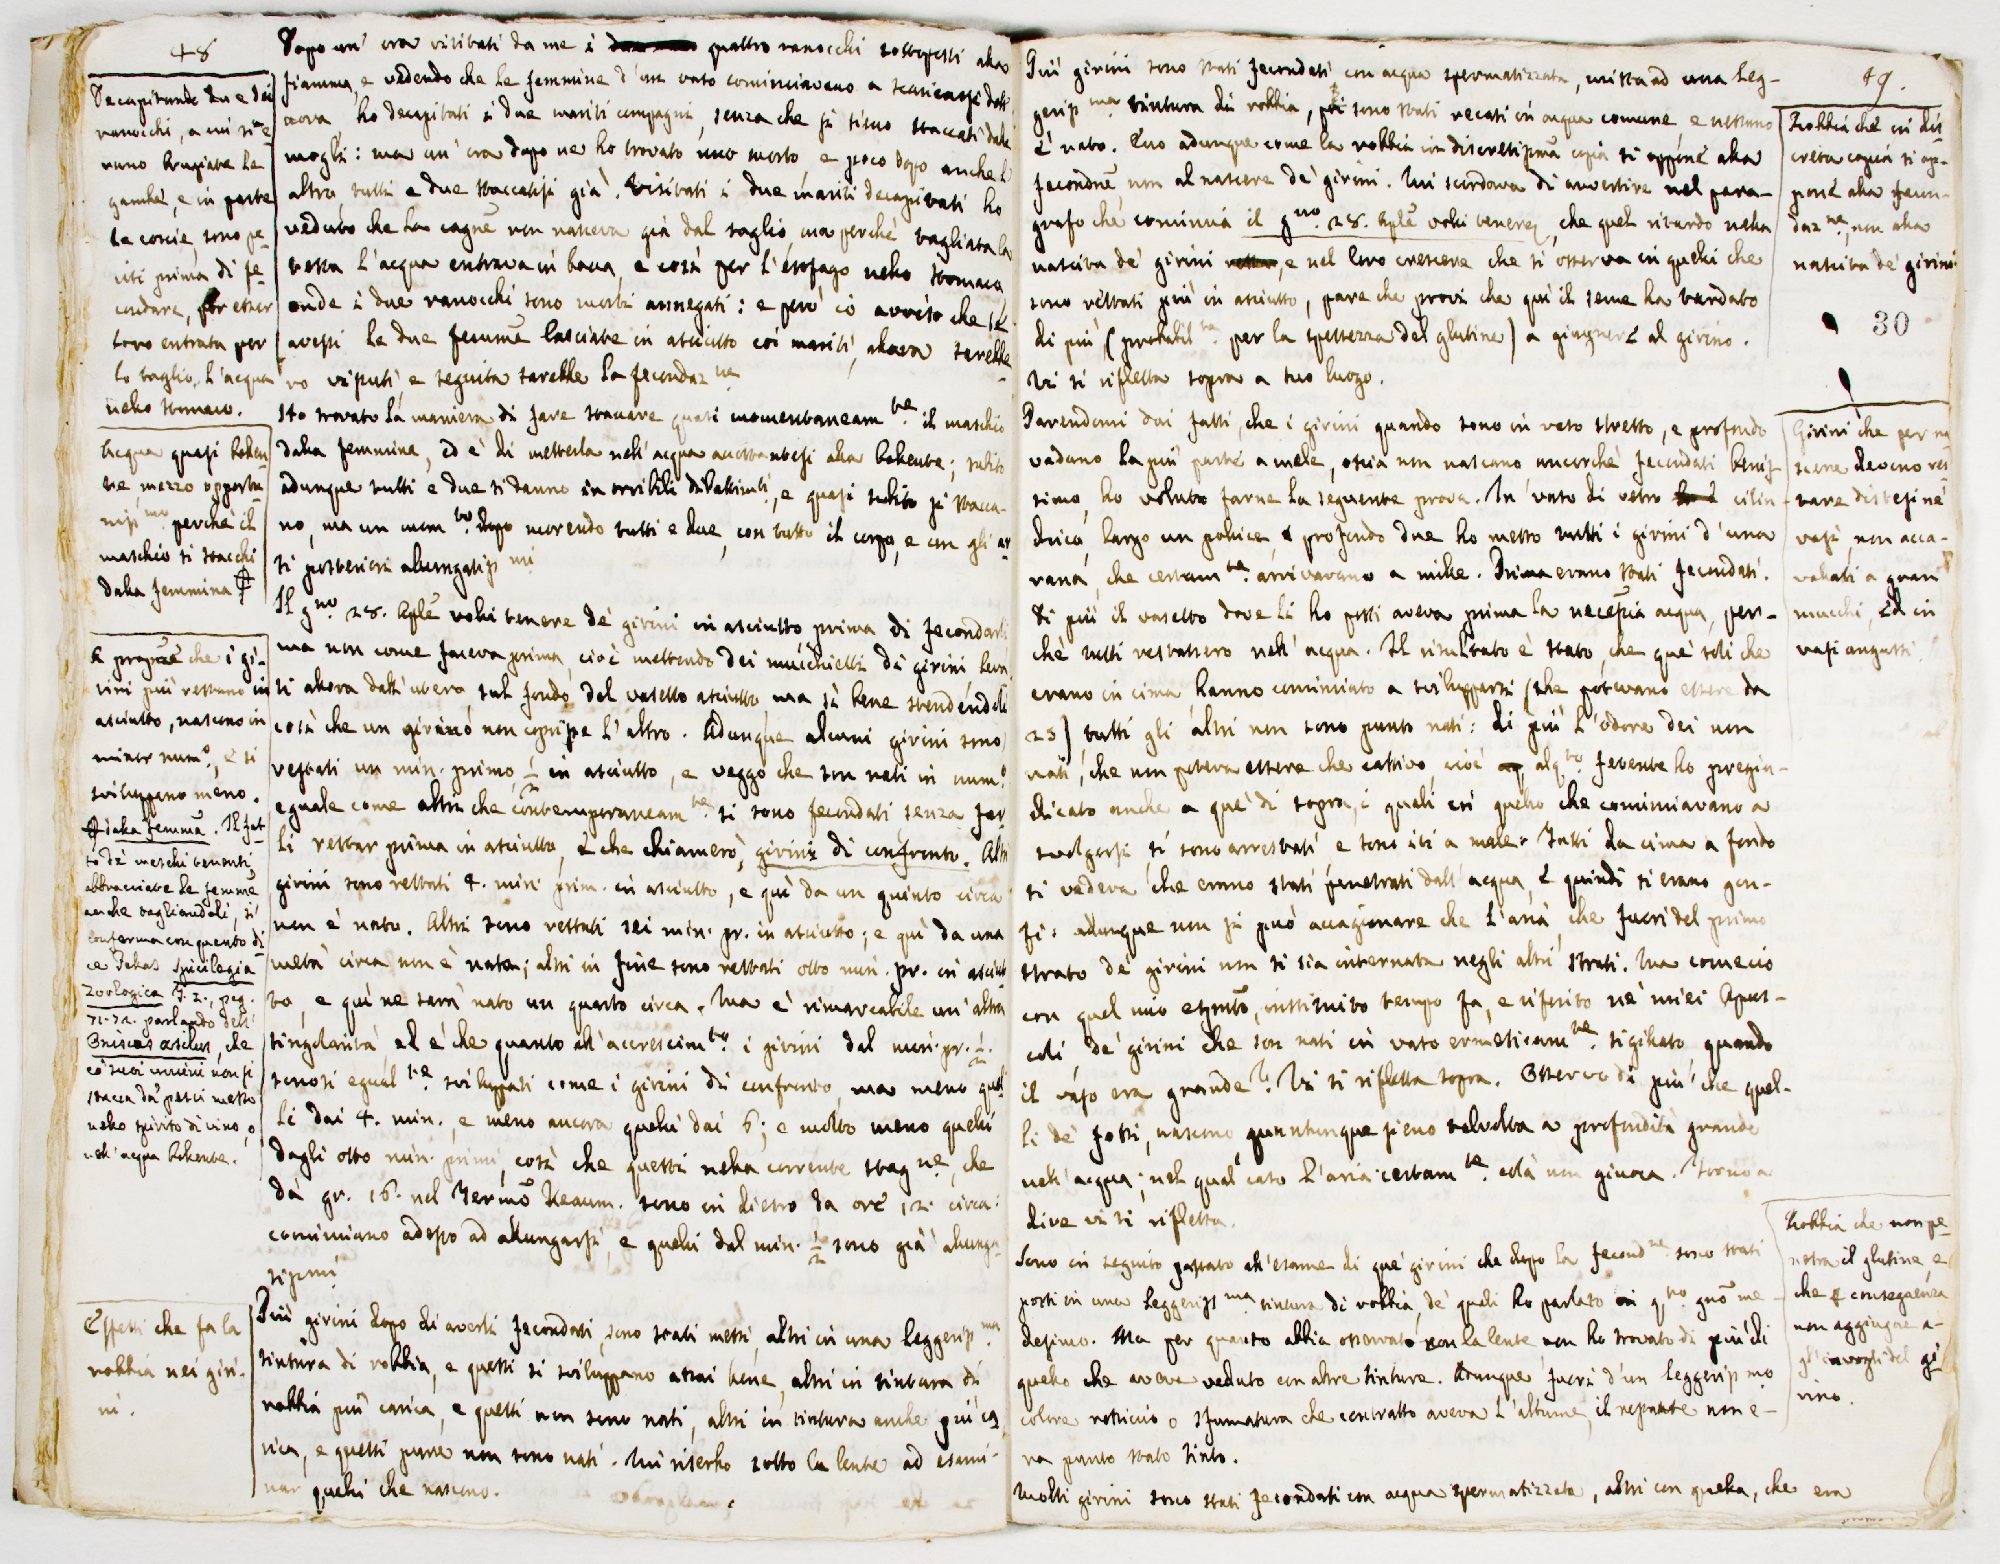 48
Decapitando due dei
ranocchi, a cui si e-
rano bruciate le
gambe, e in parte
le coscie, sono pe-
riti prima di fe-
condare, per esser
loro entrata per
lo taglio, l'acqua
nello stomaco.
Acqua quasi bollen-
te, mezzo opportu-
nissmo perchè il
maschio si stacchi
dalla femmina
E proprie che i gi-
rini più restano in
asciutto, nascono in
minor numo, e si
sviluppano meno.
dalla femma. Il fat-
to de' maschi tenenti
abbracciate le femme
anche tagliandoli, si
conferma con quanto di-
ce Pallas Spicilegia
Zoologica T. 2., pag.
71.72. parlando dell'
Oniscus asilus, che
co' suoi uncini non si
stacca da' pesci messo
nello spirito di vino, o
nell'acqua bollente.
Effetti che fa la
robbia nei giri-
ni.
Dopo un' ora visitati da me i quattro ranocchi sottoposti alla
fiamma, e vedendo che le femmine d'un vaso cominciavano a scaricarsi dell'
uova ho decapitati i due mariti compagni, senza che si sieno staccati dalle
mogli: ma un' ora dopo ne ho trovato uno morto e poco dopo anche l'
altro, tutti e due staccatisi già. Visitati i due mariti decapitati ho
veduto che la cagne non nasceva già dal taglio, ma perchè tagliata la
testa l'acqua entrava in bocca, e così per l'esofago nello stomaco
onde i due ranocchi sono morti annegati: e però io avviso che se
avessi le due femme lasciate in asciutto coi mariti, allora sarebbe-
ro vissuti e seguita sarebbe la fecondazne
Ho trovato la maniera di fare staccare quasi momentaneamte il maschio
dalla femmina, ed è di metterla nell'acqua accostantesi alla bollente; subito
adunque tutti e due si danno in orribili dibattimti, e quasi subito si stacca-
no, ma un momto dopo morendo tutti e due, con tutto il corpo, e con gli ar-
ti posteriori allungatissmi
Il gno 28. Aple volli tenere de' girini in asciutto prima di fecondarli
ma non come faceva prima, cioè mettendo dei mucchietti di girini leva-
ti allora dall'utero, sul fondo del vasetto asciutto ma sì bene stendendoli
così che un girino non coprisse l'altro. Adunque alcuni girini sono
restati un min. primo 1/2 in asciutto, e veggo che son nati in numo
eguale come altri che contemporaneamte si sono fecondati senza far-
li restar prima in asciutto, e che chiamerò, girini di confronto. Altri
girini sono restati 4. min. prim. in asciutto, e qui da un quinto circa
non è nato. Altri sono restati sei min. pr. in asciutto; e qui da una
metà circa non è nata; altri in fine sono restati otto min. pr. in asciut-
to, e qui ne sarà nato un quarto circa. Ma è rimarcabile un'altra
singolarità, ed è che quanto all'accrescimto i girini dal min. pr. 1/2
sonosi egualte sviluppati come i girini di confronto, ma meno quel-
li dai 4. min., e meno ancora quelli dai 6; e molto meno quelli
dagli otto min. primi, così che questi nella corrente stagne, che
dà gr. 16. nel Termo Reaum. sono in dietro da ore 12. circa:
cominciano adesso ad allungarsi, e quelli dal min. 1/2 sono già allunga-
tissmi
Più girini dopo di averli fecondati, sono stati messi, altri in una leggerissma
tintura di robbia, e questi si sviluppano assai bene, altri in tintura di
robbia più carica, e questi non sono nati, altri in tintura anche più ca-
rica, e questi pure non sono nati. Mi riserbo sotto la lente ad esami-
nar quelli che nascono.
49.
Più girini sono stati fecondati con acqua spermatizzata, mista ad una leg-
gerissma tintura di robbia, poi sono stati recati in acqua comune, e nessuno
è nato. Ecco adunque come la robbia in discretissma copia si oppone alla
fecondne non al nascere de' girini. Mi scordava di avvertire nel para-
grafo che comincia il gno 28. Aple volli tenere, che quel ritardo nella
nascita de' girini, e nel loro crescere che si osserva in quelli che
sono restati più in asciutto, pare che provi che quì il seme ha tardato
di più (probabilte per la spessezza del glutine) a giugnere al girino.
Vi si rifletta sopra a suo luogo.
Parendomi dai fatti, che i girini quando sono in vaso stretto, e profondo
vadano la più parte a male, ossia non nascano ancorchè fecondati benis-
simo, ho voluto farne la seguente prova. In vaso di vetro cilin-
drico, largo un pollice, e profondo due ho messo tutti i girini d'una
rana, che certamte arrivavano a mille. Prima erano stati fecondati.
Di più il vasetto dove li ho posti aveva prima la necessia acqua, per-
chè tutti restassero nell'acqua. Il risultato è stato, che que' soli che
erano in cima hanno cominciato a svilupparsi (che potevano essere da
25) tutti gli altri non sono punto nati: di più l'odore dei non
nati, che non poteva essere che cattivo, cioè alqto fetente ho pregiu-
dicato anche a que' di sopra, i quali in quello che cominciavano a
svolgersi si sono arrestati e sono iti a male. Tutti da cima a fondo
si vedeva che erano stati penetrati dall'acqua, e quindi si erano gon-
fi: adunque non si può accagionare che l'aria, che fuori del primo
strato de' girini non si sia internata negli altri strati. Ma come ciò
con quel mio espmto, instituito tempo fa, e riferito ne' miei Opus-
coli de' girini che son nati in vaso ermeticamte sigillato quando
il vaso era grande? Vi si rifletta sopra. Osservo di più che quel-
li de' fossi, nascono quantunque sieno talvolta a profondità grande
nell'acqua, nel qual caso l'aria certamte colà non giuoca. Torno a
dire vi si rifletta.
Sono in seguito passato all'esame di que' girini che dopo la fecondne sono stati
posti in una leggerissma tintura di robbia, de' quali ho parlato in qto gno me-
desimo. Ma per quanto abbia osservato con la lente non ho trovato di più di
quello che aveva veduto con altre tinture. Adunque fuori d'un leggerissmo
colore rossiccio o sfumatura che contratto aveva l'albume, il restante non e-
ra punto stato tinto.
Molti girini sono stati fecondati con acqua spermatizzata, altri con quella, che era
Robbia che in dis-
creta copia si op-
pone alla fecon-
dazne, non alla
nascita de' girini
30
Girini che per na-
scere devono res-
tare distesi ne'
vasi, non acca-
vallati a gran
mucchi, ed in
vasi angusti.
Robbia che non pe-
netra il glutine, e
che conseguenza
non aggiugne a-
gl'invogli del gi-
rino.